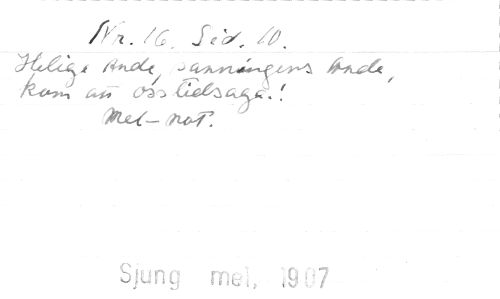 Nr. 16. Sid. 10.
Helige Ande, sanningens Ande,
kom att oss ledsaga.!
Mel-not.
Sjung mel, 1907